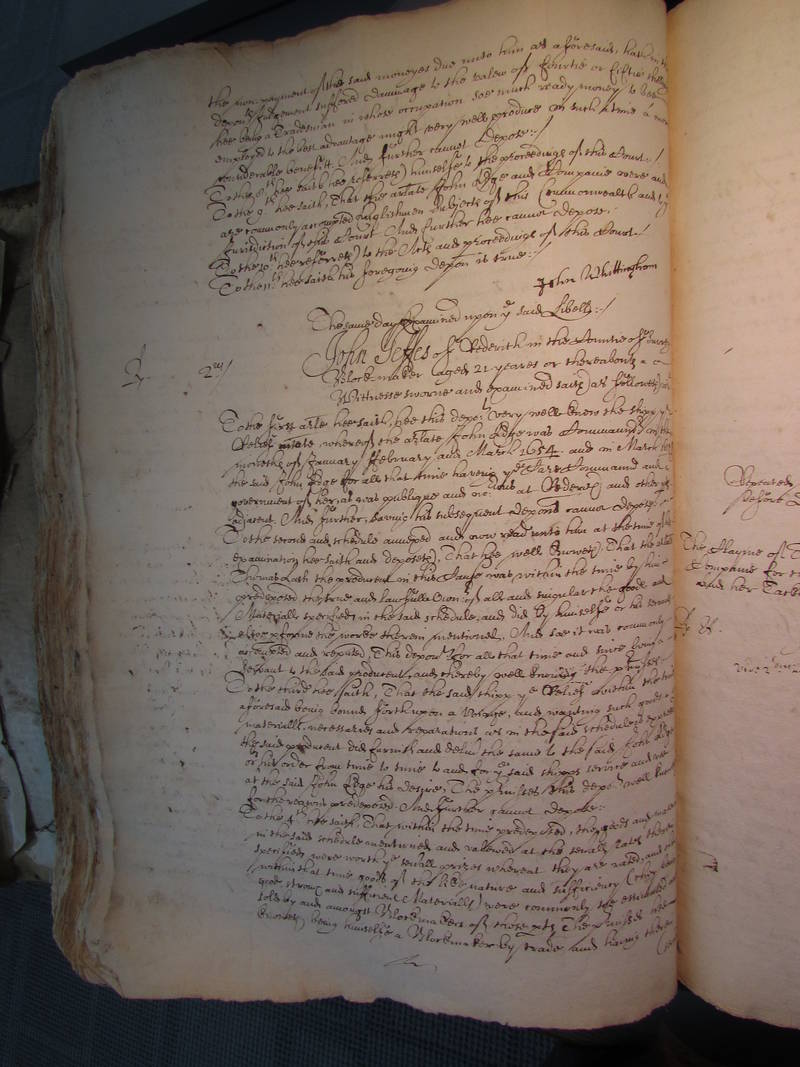 the non payment of the said moneyes due unto him as aforesaid, hath in this
deponts Judgement suffered dammage to the valew of fourtie or fiftie
hee being a Tradesman in whose occupation soe much ready money to bee
employed to the best advantage might very well produce in such a time a more
considerable benefitt, And further cannot depose:/
To the 8th hee saith hee referreth himselfe to the proceedings of this Court:/
To the 9th hee saith, That the arlate John Edge and Companie were and
are commonly accompted Englishmen subjects of this Commonwealth and
Jurisdiction of this Court And further hee cannot depose.
To the 10th hee referreth to the Acts and proceedings of this Court:/
To the 11th hee saith his foregoing deposn is true:/
John Whittingham
The same day Examined upon ye said Libell:/
2us/
John Jeffes of Rederith in the Countie of Surrey
Block-maker aged 21 yeares or thereabouts a
Wittnesse sworne and examined saith as followeth
To the first arlte hee saith, hee this depot very well knew the shipp ye
Releif arlate, whereof the arlate John Edge was Commander in the
moneths of January February and March 1654 and in March
the said John Edge for all that time having ye Care Command and
government of her, as was publique and notorious at Rederith and other
adjacent. And further, saving his subsequent deposn cannot depose:
To the second and schedule annexed and now read unto him at the time of his
examination hee saith and deposeth, That hee well knoweth, That the arlate
Thomas Lath the producent in this Cause was within the time by him
predeposed the true and lawfull Owner of all and singular the goods and
Materialls specified in the said schedule, and did by himselfe or his servts
performe the worke therein mentioned, And soe it was commonly
accompted and reputed, This depont for all that time and since being
servant to the said producent, and thereby well knowing the premisses
To the third hee saith, That the said shipp ye Releif within the time
aforesaid being bound forth upon a Voyage, and wanting such goods
materialls, necessaries and reparations as in the said schedule is expressed
the said producent did furnish and deliver the same to the said John Edge
or his order from time to time to and for ye said shipps service and use
at the said John Edge his desire, The premisses this depot well knoweth
for the reasons predeposed. And further cannot depose:
To the 4th hee saith, That within the time predeposed, the goods and materialls
in the said schedule mentioned and vallewed at the severall rates therein
specified, were worth ye severall prizes whereat they are rated, and
within that time goods of the like nature and sufficiency (they being
good, strong and sufficient Materialls) were commonly soe estimated
sold by and amongst Block makers of those pts, The premisses hee
knoweth being himselfe a Blockmaker by trade and having then
Repeated
before
The Mayne of
Companie for
and her Tackle